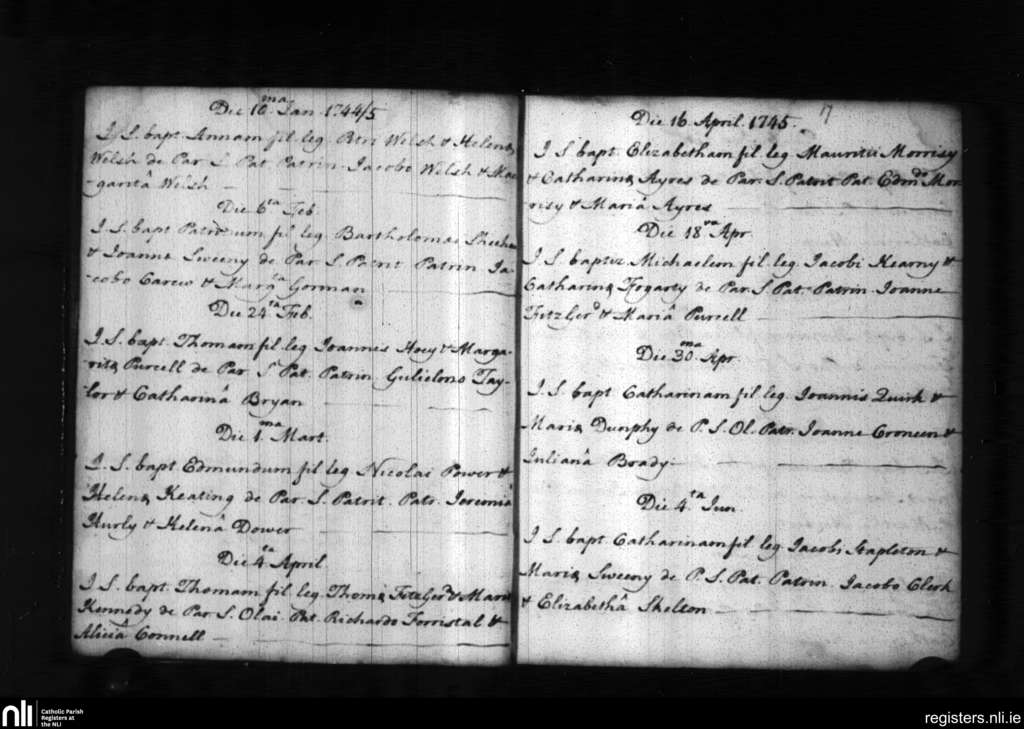 Die 16.ma Jan. 1744/5
I S. bapt. Annam fil leg. Ptri Welsh & Helenæ
Welsh de Par S. Pat. Patrin. Jacobo Welsh & Mar
-garitâ Welsh
Die 6.ta Feb.
I S. bapt Patricium fil leg. Bartholomæi Sheehan
& Joannæ Sweeny de Par S. Patrit Patrin Ja-
-cobo Carew & Margta Gorman
Die 24.ta Feb.
I S. bapt. Thomam fil leg Joannes Hoey & Marga-
-ritæ Purcell de Par S. Pat. Patrin. Gulielmo Tay-
-lor & Catharinâ Bryan
Die 1.ma Mart.
I. S. bapt Edmundum fil leg Nicolai Power &
Helenæ Keating de Par. S. Patrit. Patr. Jeremiâ
Hurly & Helenâ Dower
Die 4.ta April
I S. bapt. Thomam fil leg. Thomæ FitzGerd & Mariæ
Kennedy de Par S. Olai. Pat. Richardo Forristal &
Aliciâ Connell
17
Die 16 April. 1745.
I S bapt Elizabetham fil leg Mauritii Morrisy
& Catharinæ Ayres de Par. S. Patrit Pat. Edmdo Mor
risy & Mariâ Ayres
Die 18.va Apr.
I S. baptiz. Michaelem fil leg. Jacobi Kearny &
Catharinæ Fogarty de Par S. Pat. Patrin. Joanne
FitzGerd & Mariâ Purcell
Die 30.ma Apr.
I. S. bapt Catharinam fil leg. Joannis Quirk &
Mariæ Dunphy de P. S. Ol. Patr. Joanne Croneen &
Julianâ Brady
Die 4.ta Jun.
I S. bapt. Catharinam fil leg. Jacobi Stapleton &
Mariæ Sweeny de P. S. Pat. Patrin. Jacobo Clerk
& Elizabethâ Skelton
nli
Catholic Parish
Registers at
the NLI
registers.nli.ie